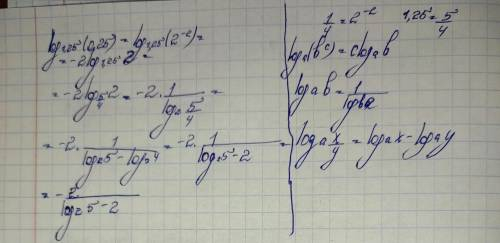 log₁,₂₅(0,25) = log₁,₂₅(2⁻²) =
= -2 log₁,₂₅ 2 =
= -2 log_{5/4} 2 = -2 · 1/(log₂ 5/4) =
= -2 · 1/(log₂5 - log₂4) = -2 · 1/(log₂5 - 2) =
= - 2/(log₂5 - 2)
1/4 = 2⁻² 1,25 = 5/4
logₐ(b^c) = c logₐb
logₐb = 1/(log_b a)
logₐ x/y = logₐx - logₐy